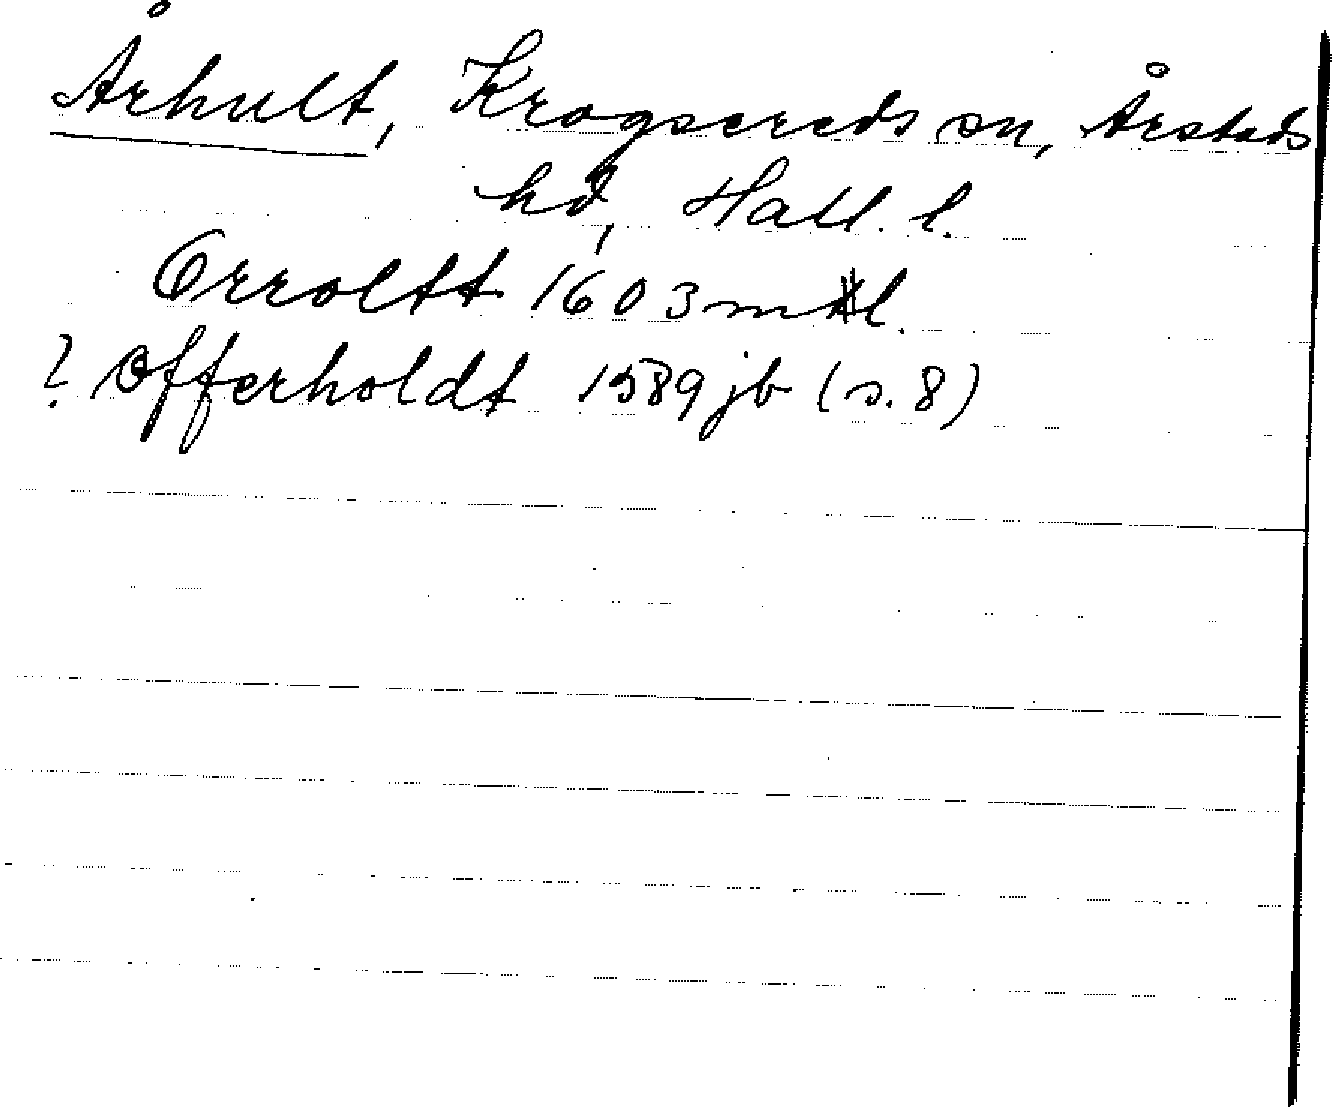 Århult, Krogsereds sn, Årstads
hd, Hall. l.
Orroltt 1603 mtl.
? Offerholdt 1589 jb (s. 8)